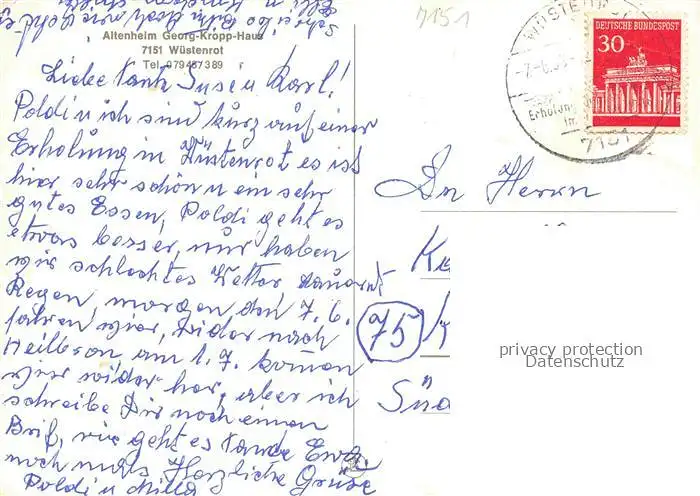 7151
Altenheim Georg-Kropp-Haus
7151 Wüstenrot
Tel. 079457389
Liebe Tante Suse u Karl!
Poldi u ich sind kurz auf einer
Erholung in Wüstenrot es ist
hier sehr schön u ein sehr
gutes Essen, Poldi geht es
etwas besser, nur haben
wir schlechtes Wetter dauernd
Regen morgen den 7. 6.
fahren wir, wider nach
Heilbron am 1. 7. koman
wir wider her, aber ich
schreibe Dir noch einen
Brif, wie geht es Tante
noch mals Herzliche Grüße
Poldi u Milla
DEUTSCHE BUNDESPOST
30
Erholung
7151
An Herrn
75
Süd
privacy protection
Datenschutz